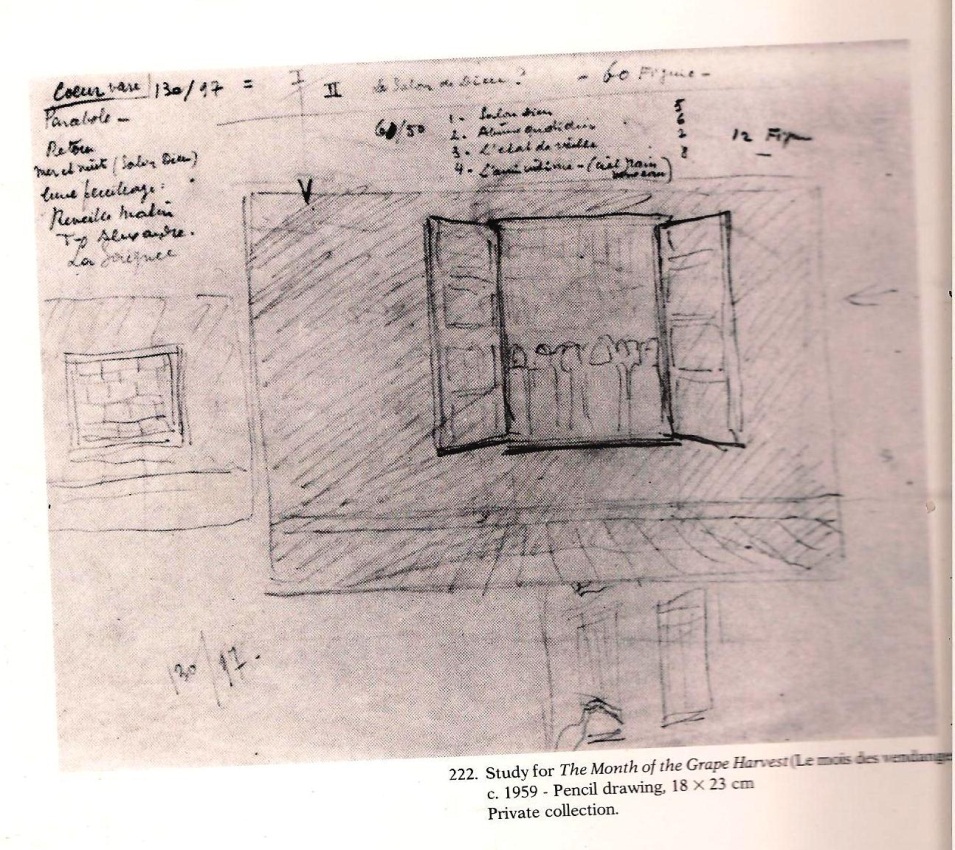 Coeur vase 130/97 = I II Le Salon de Dieu ? - 60 Figure -
Parabole -
Retour
mer et nuit (Salon Dieu)
lune
Réveille Matin
Alexandre.
La Joignee
60/50
1. Salon Dieu 5
2. Abîme quotidien 6
3. L'état de veille 2
4. L'ami intime - (ciel pain 8
12 Fig
V
130/97.
222. Study for The Month of the Grape Harvest (Le mois des vendange
c. 1959 - Pencil drawing, 18 × 23 cm
Private collection.